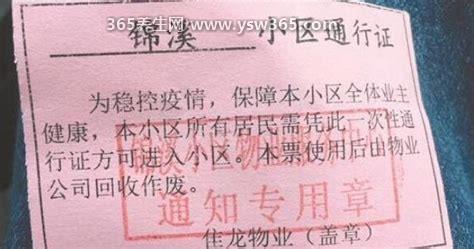 365养生网 www.ysw365.com
锦溪 小区通行证
为稳控疫情，保障本小区全体业主
健康，本小区所有居民需凭此一次性通
行证方可进入小区。本票使用后由物业
公司回收作废。
通知专用章
佳龙物业（盖章）